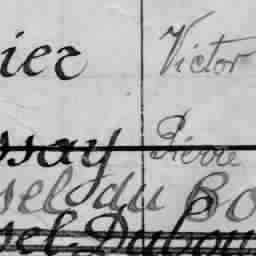 ier Victor
ssay Pierre
sel du Bo
sel Dubou